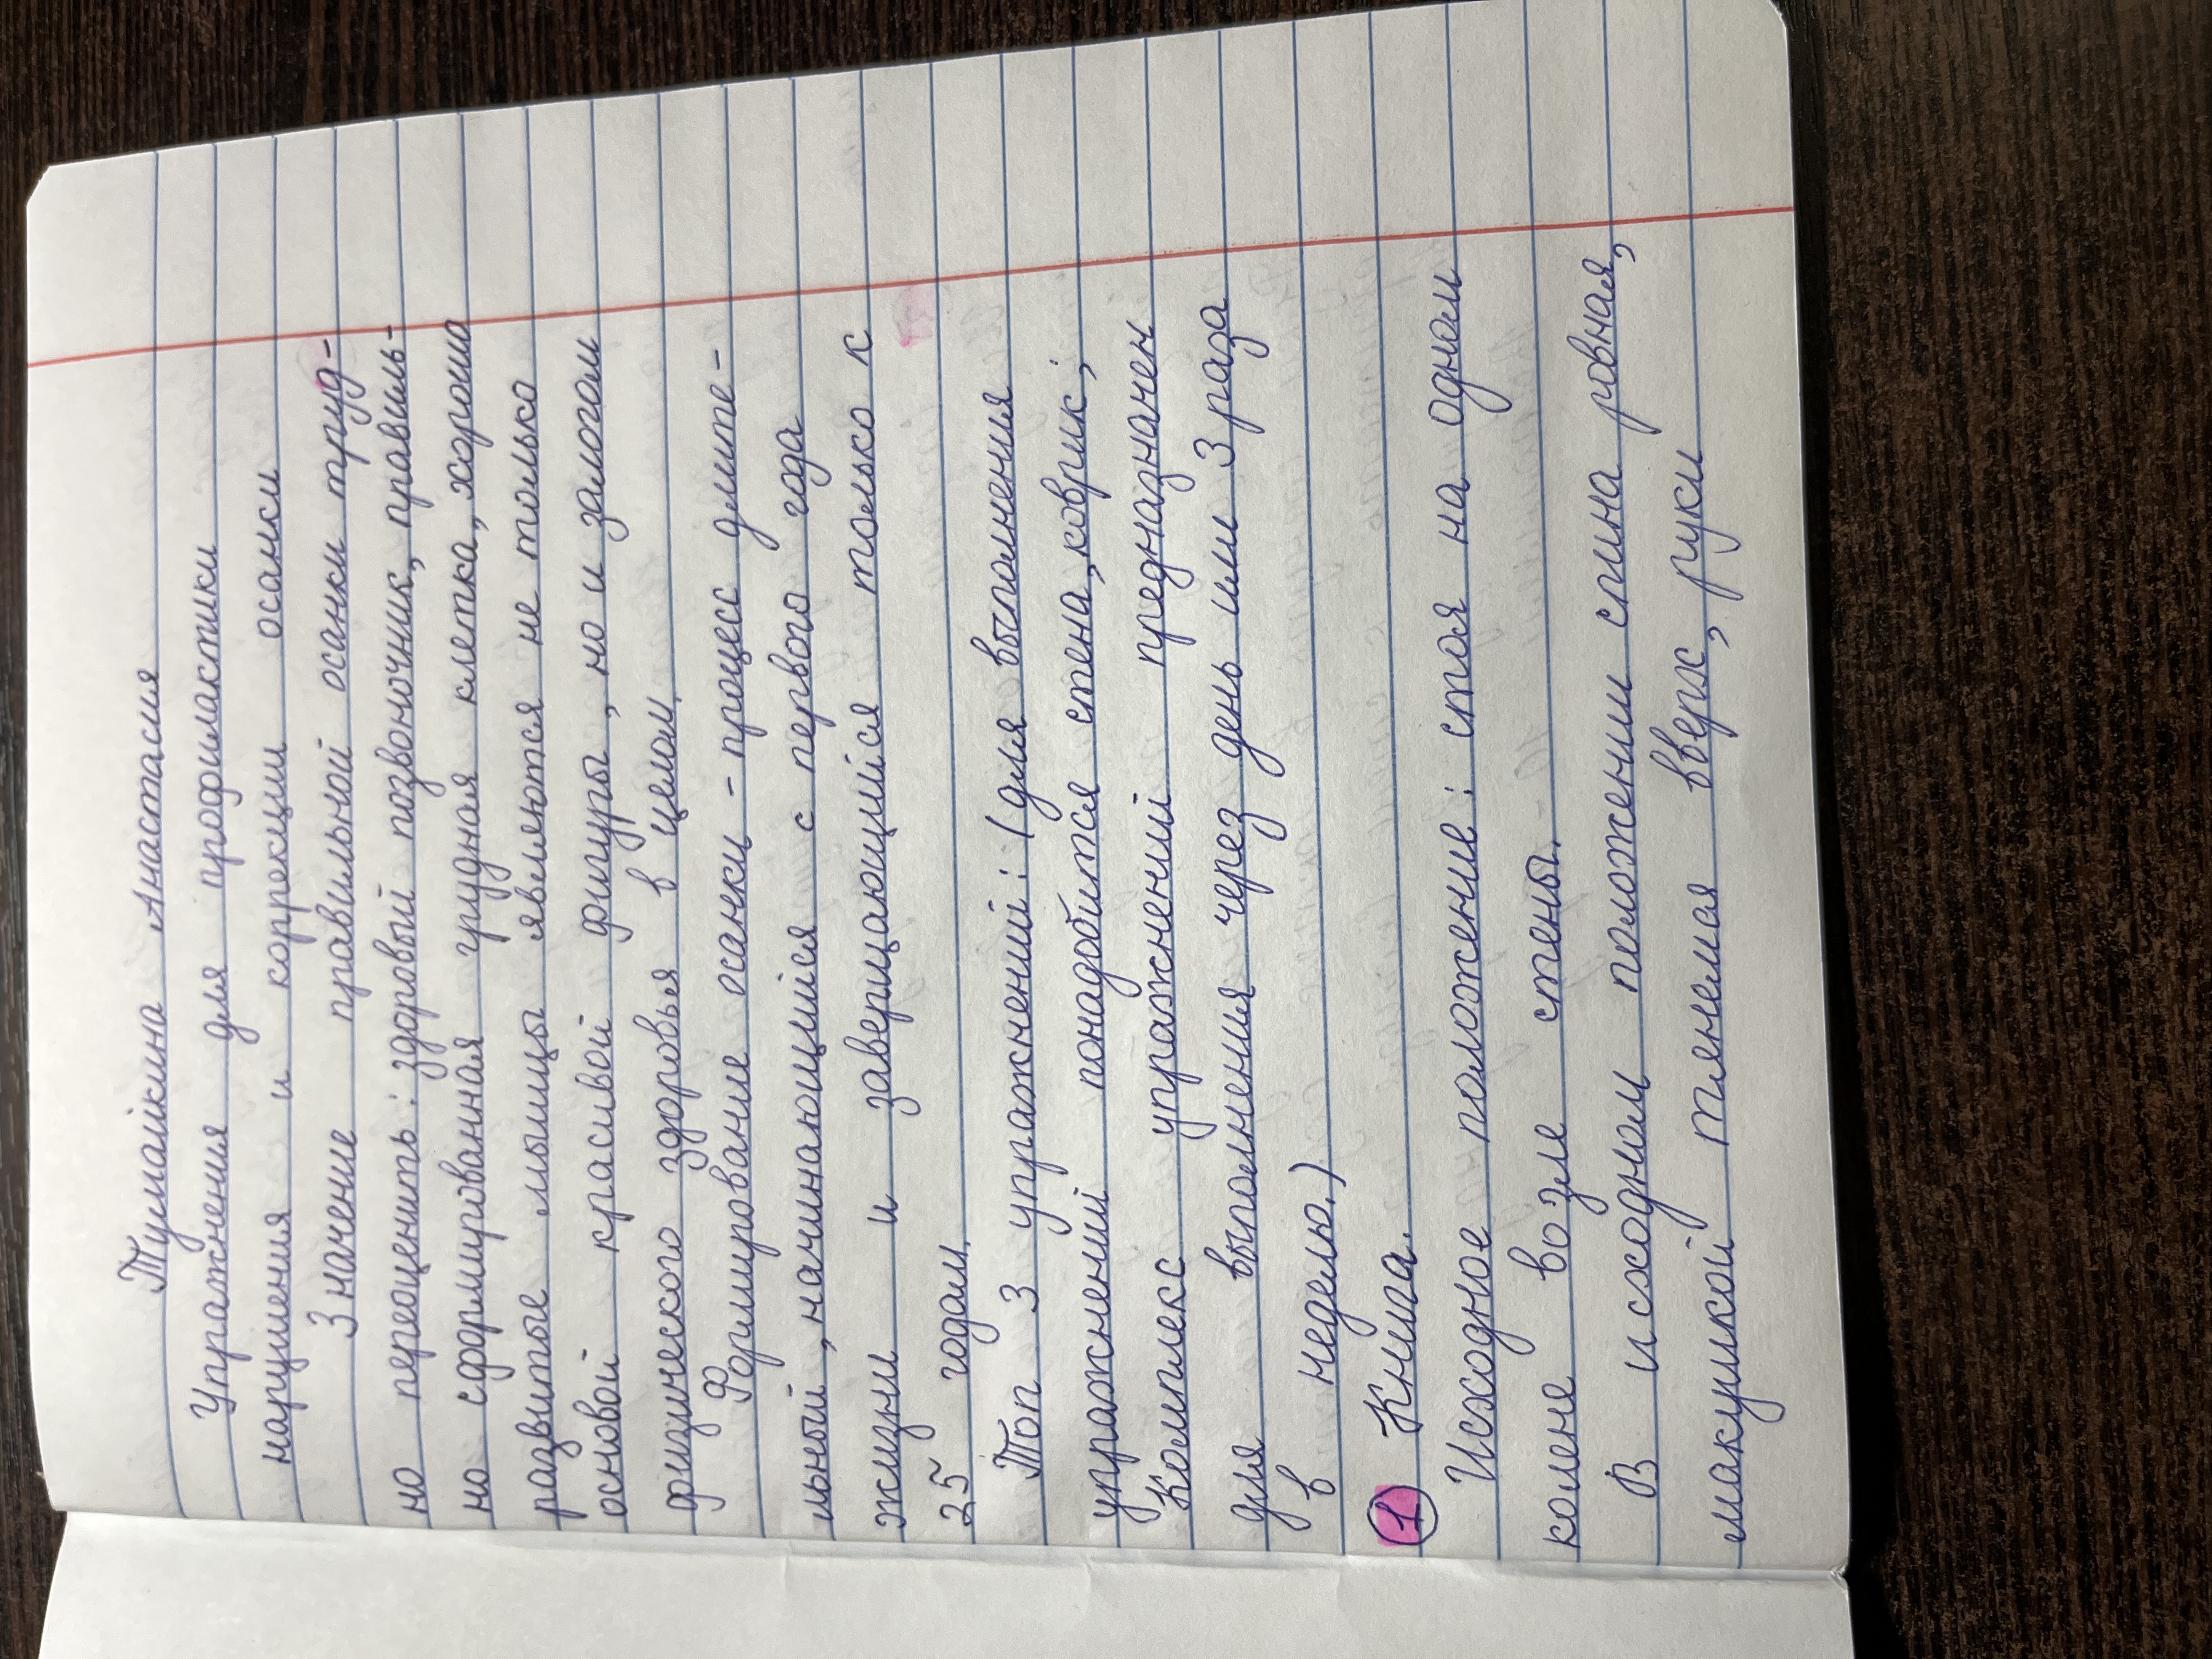 Тумайкина Анастасия
Упражнения для профилактики
нарушения и коррекции осанки
Значение правильной осанки труд-
но переоценить: здоровый позвоночник, правиль-
но сформированная грудная клетка, хорошо
развитые мышцы являются не только
основой красивой фигуры, но и залогом
физического здоровья в целом.
Формирование осанки - процесс длите-
льный, начинающийся с первого года
жизни и завершающийся только к
25 годам.
Топ 3 упражнений: (для выполнения
упражнений понадобится стена, коврик;
Комплекс упражнений предназначен
для выполнения через день или 3 раза
в неделю.)
1 Книга.
Исходное положение: стоя на одном
колене возле стены.
В исходном положении спина ровная,
макушкой тянемся вверх, руки